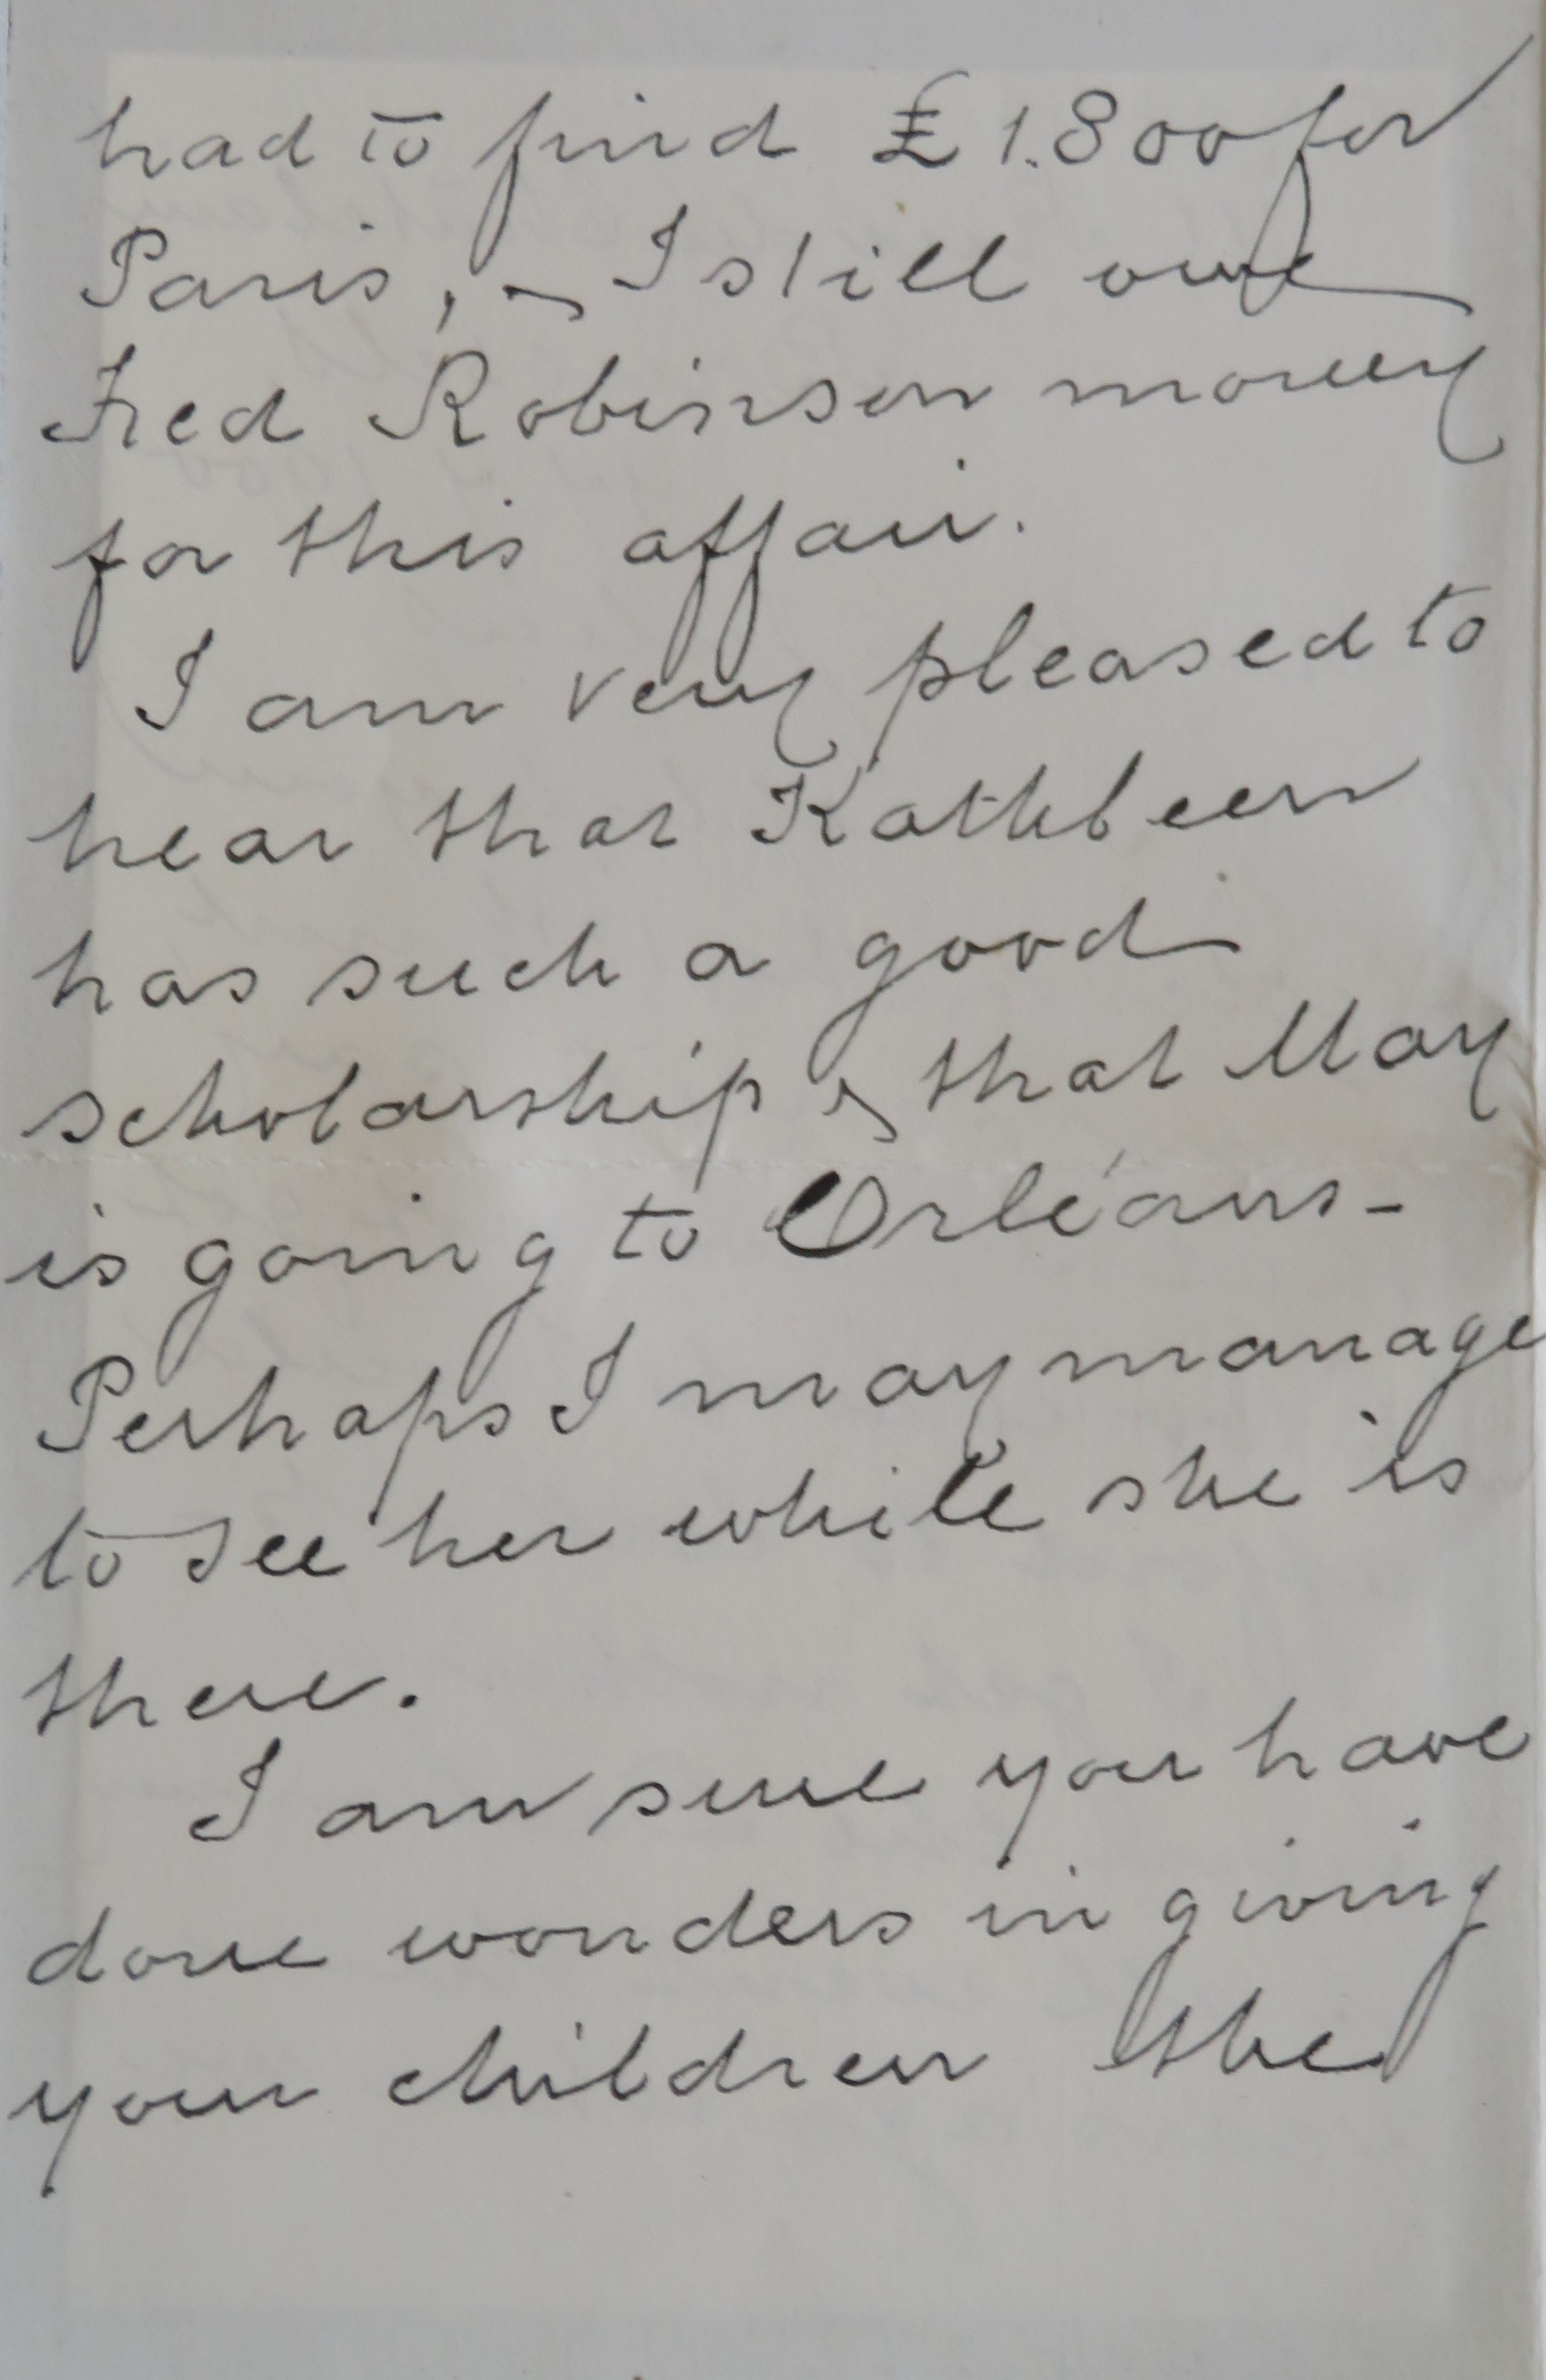 had to find £1.800 for
Paris, & I still owe
Fred Robinson money
for this affair.
I am very pleased to
hear that Kathleen
has such a good
scholarship & that May
is going to Orléans -
Perhaps I may manage
to see her while she is
there.
I am sure you have
done wonders in giving
your children the